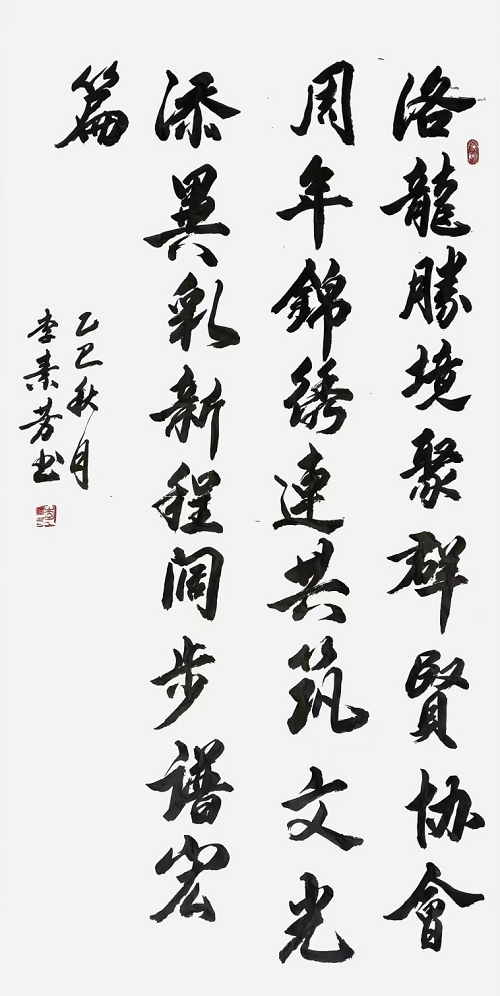 洛龍勝境聚群賢协會
周年錦绣連共筑文光
添異彩新程阔步谱宏
篇
乙巳秋月
李素芳书